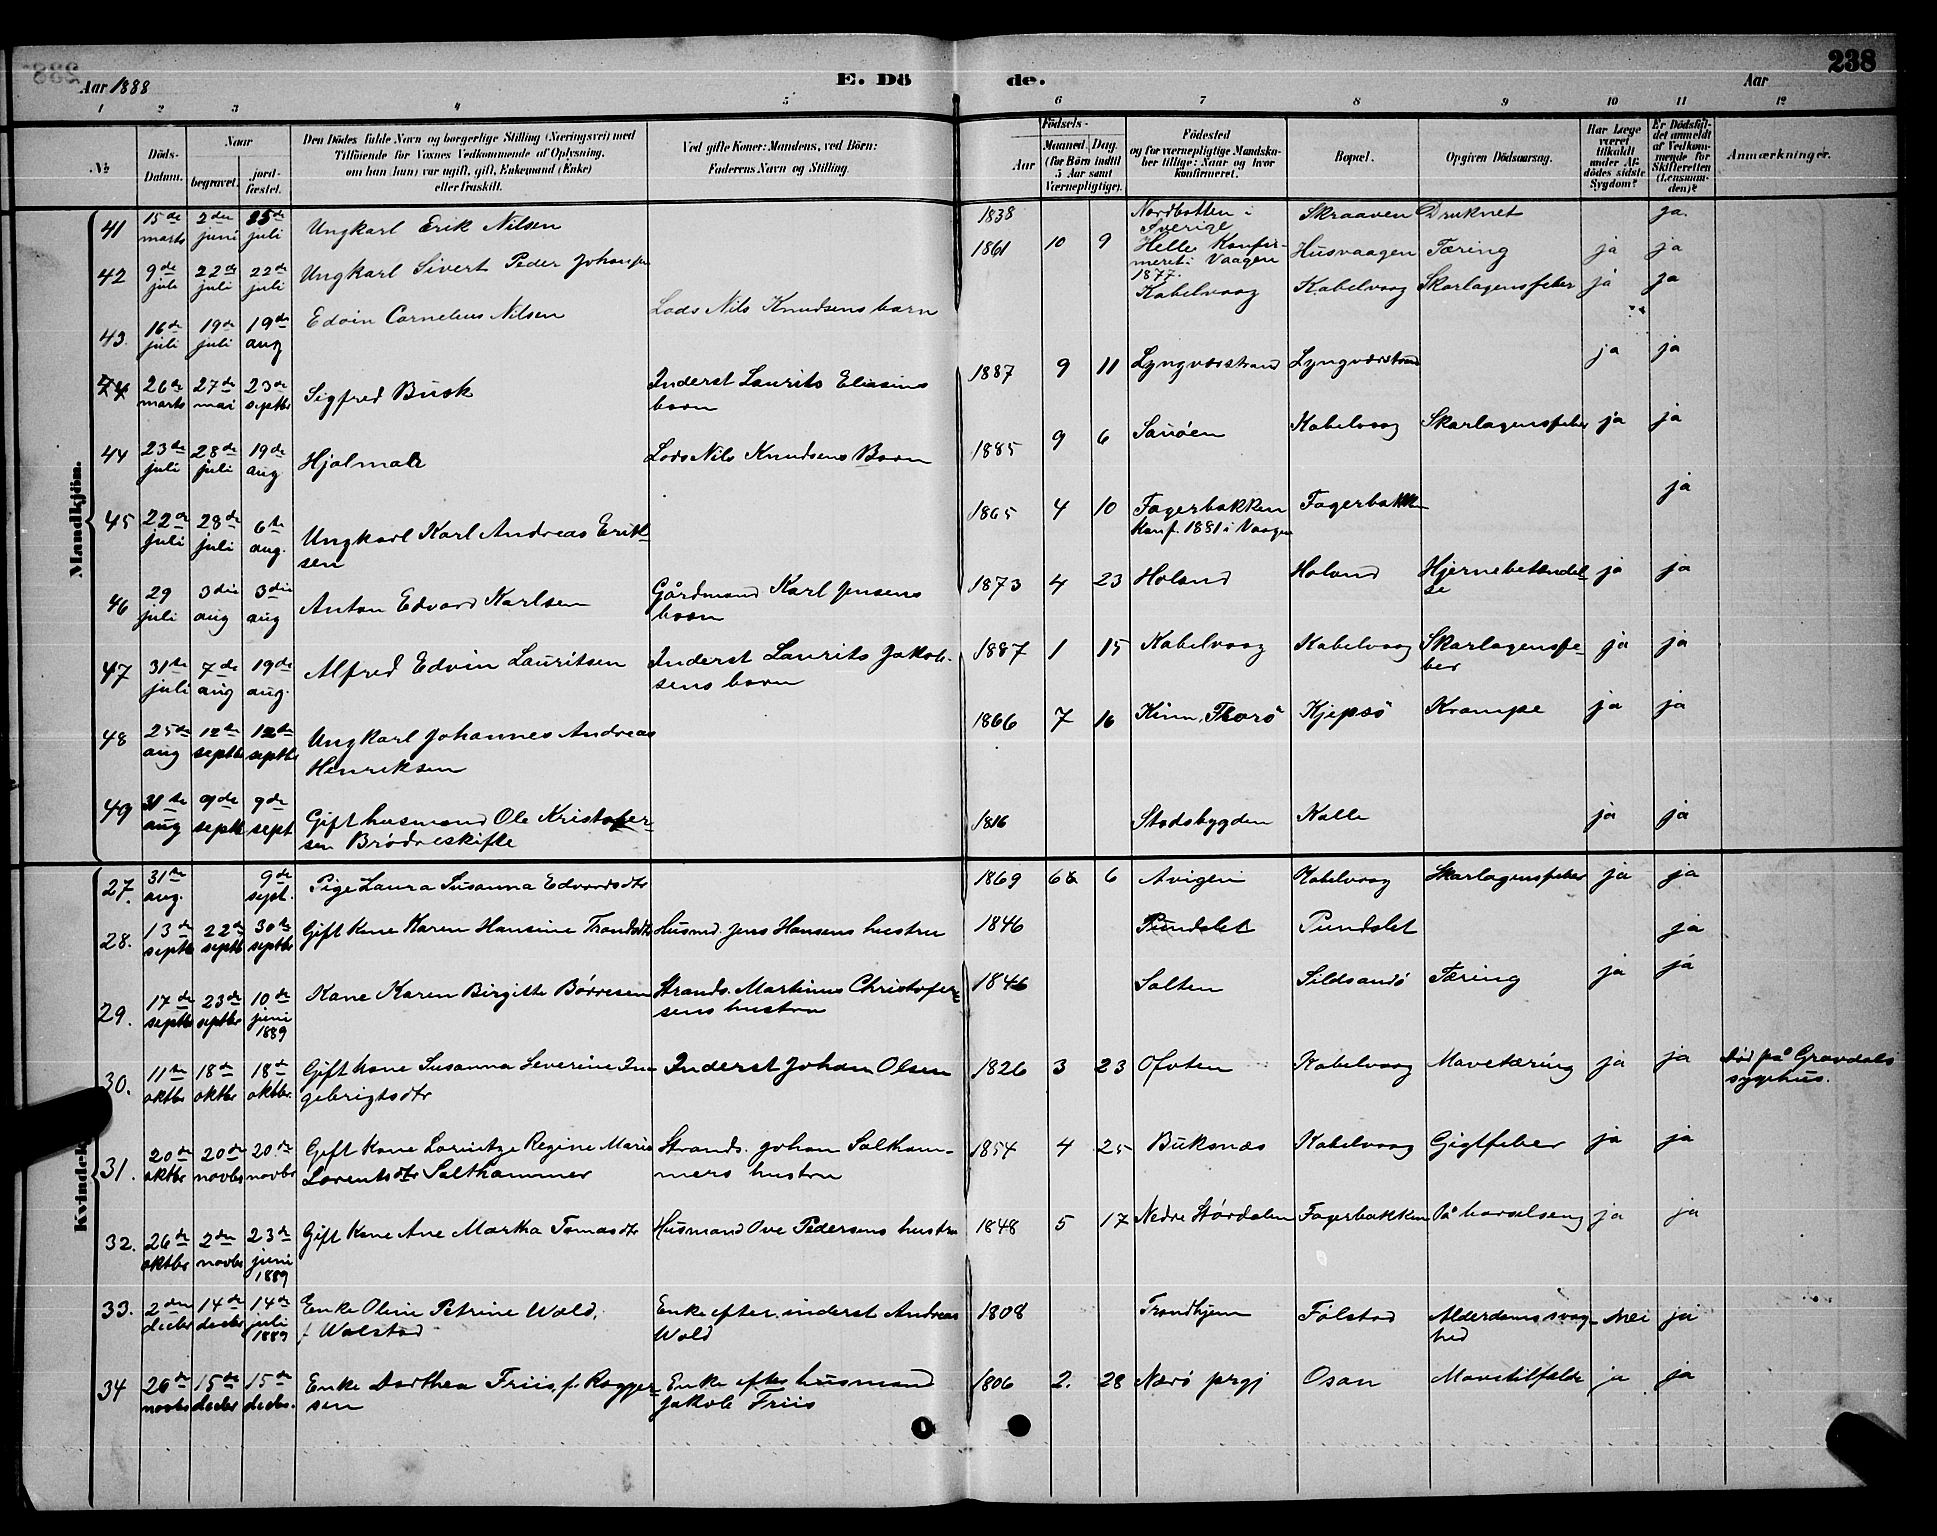 238
Aar 1888
E. Dö
de.
Aar
1 2 3 4 5 6 7 8 9 10 11 12
No
Döds-
Datum.
Naar
begravet.
jord-
fæstet.
Den Dödes fulde Navn og borgerlige Stilling (Næringsvei) med
Tilföiende for Voxnes Vedkommende af Oplysning,
om han (hun) var ugift, gift, Enkemand (Enke)
eller fraskilt.
Ved gifte Koner: Mandens, ved Börn:
Faderens Navn og Stilling.
Födsels-
Aar
Maaned. Dag.
(for Börn indtil
5 Aar samt
Værnepligtige).
Födested
og for værnepligtige Mandska-
ber tillige: Naar og hvor
konfirmeret.
Bopæl.
Opgiven Dödsaarsag.
Har Læge
været
tilkaldt
under Af-
dödes sidste
Sygdom?
Er Dödsfal-
det anmeldt
af Vedkom-
mende for
Skifteretten
(Lensman-
den)?
Anmærkninger.
Mandkjön.
41 15de marts 2den juni 25de juli Ungkarl Erik Nilsen 1838 Nordbotten i Sverige Skraaven Druknet ja.
42 9de juli 22de juli 22de juli Ungkarl Sivert Peder Johansen 1861 10 9 Helle Konfir-
meret i Vaagen
1877. Husvaagen Tæring ja ja
43. 16de juli 19de juli 19de aug Edvin Cornelius Nilsen Lods Nils Knudsens barn Kabelvaag Kabelvaag Skarlagensfeber ja ja
44 26de marts 27de mai 23de septbr Sigfred Busk Inderst Laurits Eliasens
barn 1887 9 11 Lyngværstrand Lyngværstrand ja ja
44 23de juli 28de juli 19de aug Hjalmar Lods Nils Knudsens Barn 1885 9 6 Sauöen Kabelvaag Skarlagensfeber ja ja
45 22de juli 28de juli 6te aug. Ungkarl Karl Andreas Erik-
sen 1865 4 10 Fagerbakken
Konf. 1881 i Vaagen Fagerbakken ja
46 29 juli 3die aug 3die aug Anton Edvard Karlsen Gårdmand Karl Jensens
barn 1873 4 23 Holand Holand Hjernebetændel-
se ja ja
47 31te juli 7de aug 19de aug. Alfred Edvin Lauritsen Inderst Laurits Jakob-
sens barn 1887 1 15 Kabelvaag Kabelvaag Skarlagensfe-
ber ja ja
48 25de aug 12te septbr 12te septbr Ungkarl Johannes Andreas
Henriksen 1866 7 16 Kinn, Thorö Kjepsö Krampe ja ja
49 31te aug 9de septb 9de sept Gift husmand Ole Kristofer-
sen Brödreskifte 1816 Stadsbygden Kalle ja ja
Kvindek
27. 31te aug. 9de sept. Pige Laura Susanna Edvardsdtr 1869 6 6 Avigen Kabelvaag Skarlagensfeber ja ja
28. 13de septb 22de septb 30te septbr Gift Kone Karen Hansine Trondsdtr Husmd. Jens Hansens hustru 1846 Pundslet Pundslet ja
29. 17de septbr 23de septbr 10de juni 1889 Kone Karen Birgitte Börresen Strands. Martinus Christofer-
sens hustru 1846 Salten Sildsandö Tæring ja ja
30. 11te oktbr 18de oktbr 18de oktbr. Gift kone Susanna Severine In-
gebrigtsdtr Inderst Johan Olsen 1826 3 23 Ofoten Kabelvaag Mavetæring ja ja Död på Gravdals
sygehus.
31. 20de oktbr 20de novbr 20de novbr Gift Kone Lornitze Regine Marie
Lorentsdtr Salthammer Strands. Johan Saltham-
mers hustru 1854 4 25 Buksnæs Kabelvaag Gigtfeber ja ja
32. 26de oktbr 2den novbr 23de juni 1889 Gift Kone Ane Martha Tomasdtr Husmand Ove Pedersens hustru 1848 5 17 Nedre Stördalen Fagerbakken På barselseng ja ja
33. 2den decbr 14de decbr 14de juli 1889 Enke Oline Petrine Wold,
f. Wolstad Enke efter inderst Andreas
Wold 1808 Trondhjem Fölstad Alderdomssvag-
hed nei ja
34 26de novbr 15de decbr 15de decbr. Enke Dorthea Friis, f. Rogger-
sen Enke efter husmand
Jakob Friis 1806 2. 28 Nærö prgj Osan Mavetilfælde ja ja